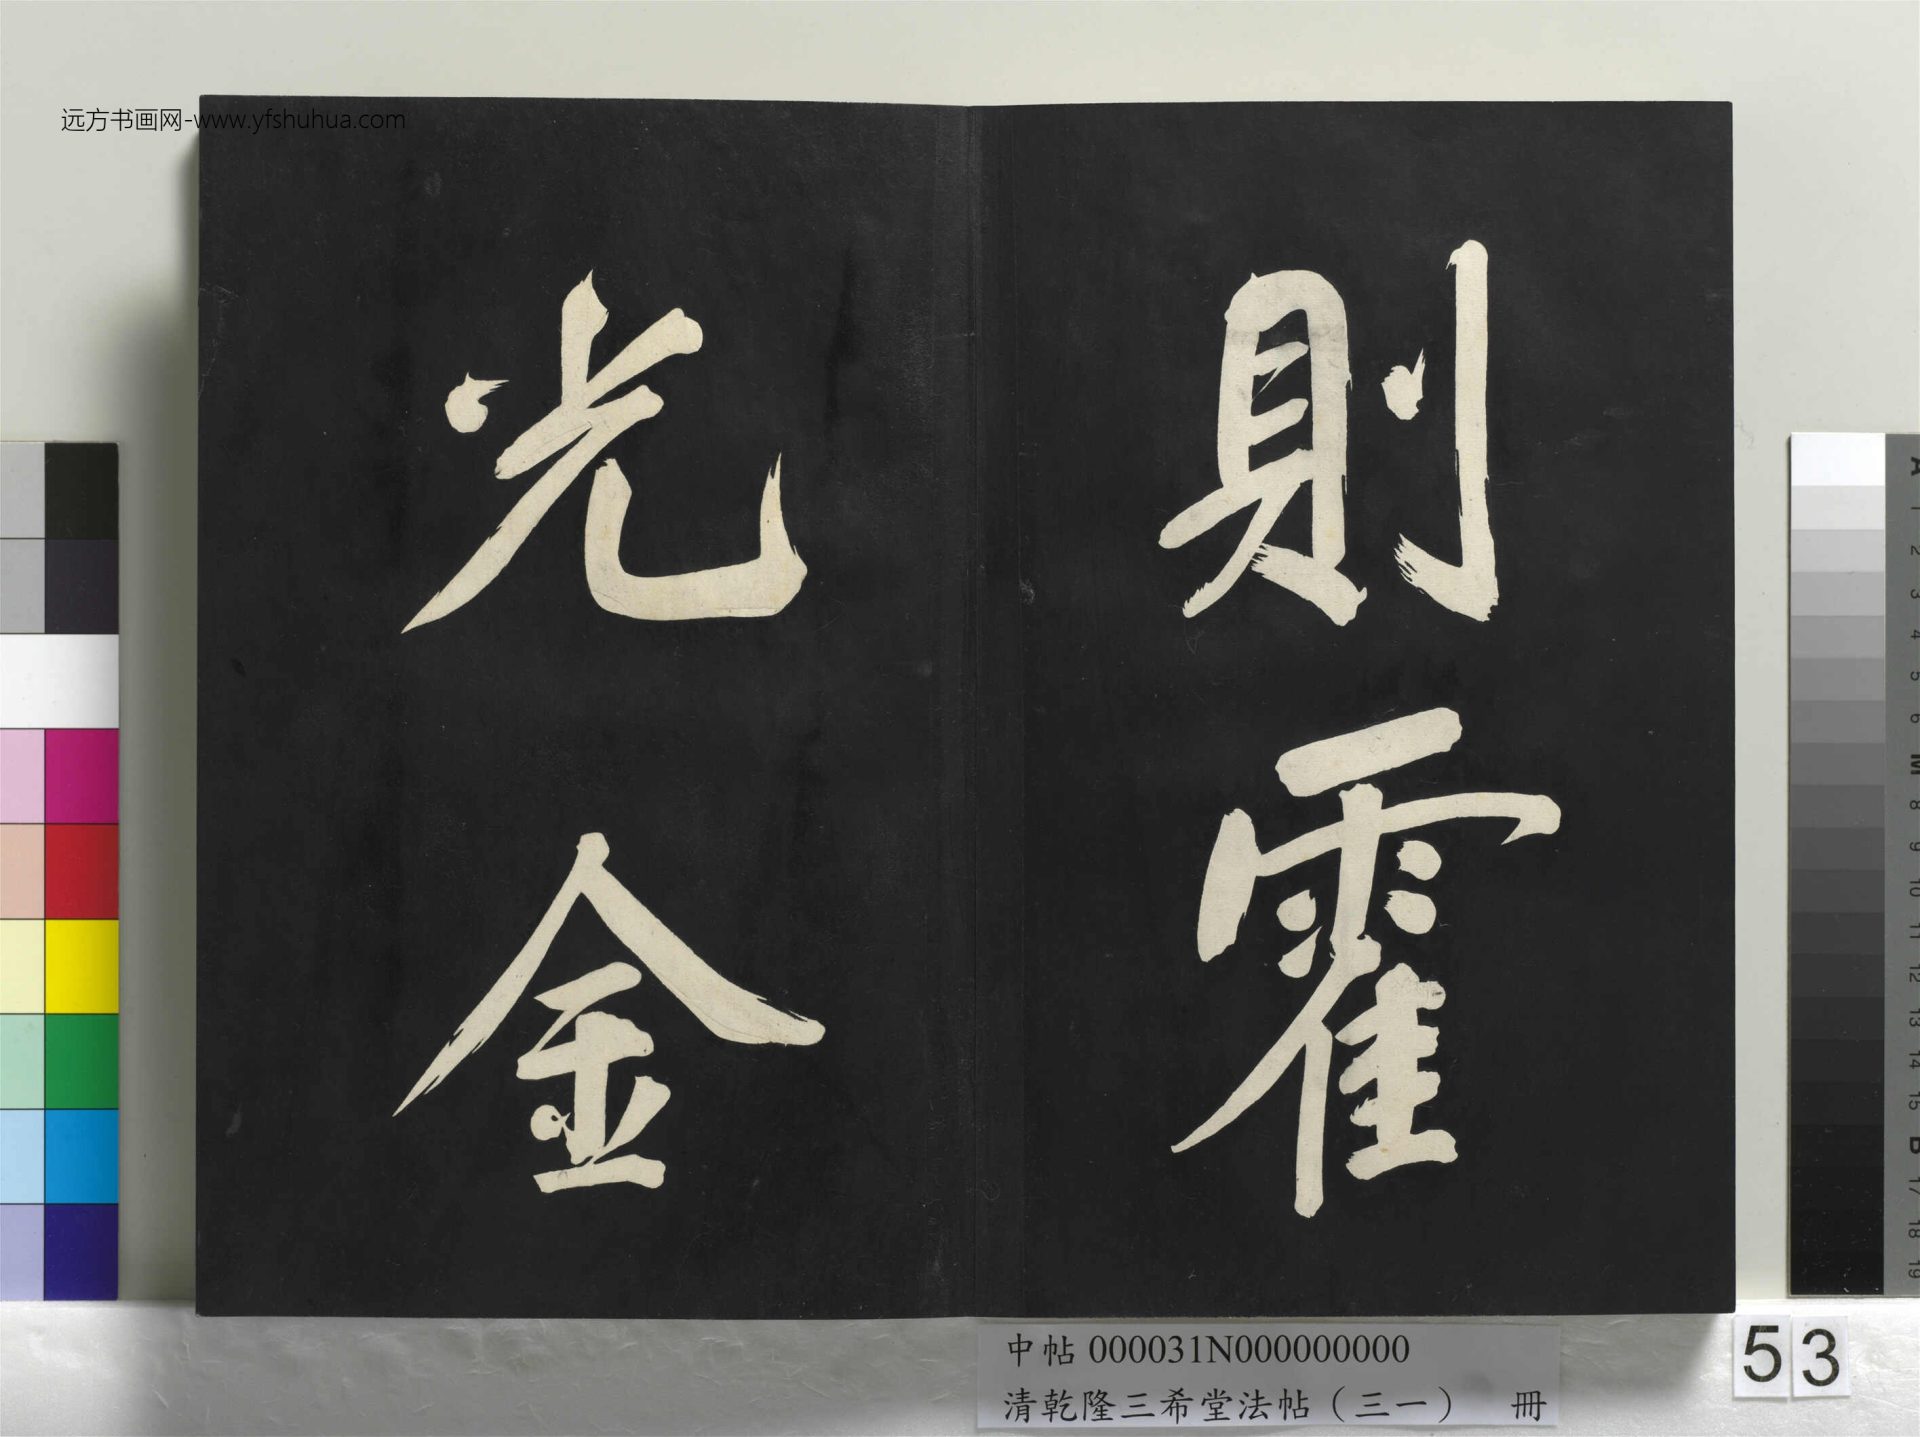 远方书画网-www.yfshuhua.com
則霍
光金
中帖 000031N000000000
清乾隆三希堂法帖（三一） 冊
53
A 1 2 3 4 5 6 M 8 9 10 11 12 13 14 15 B 17 18 19